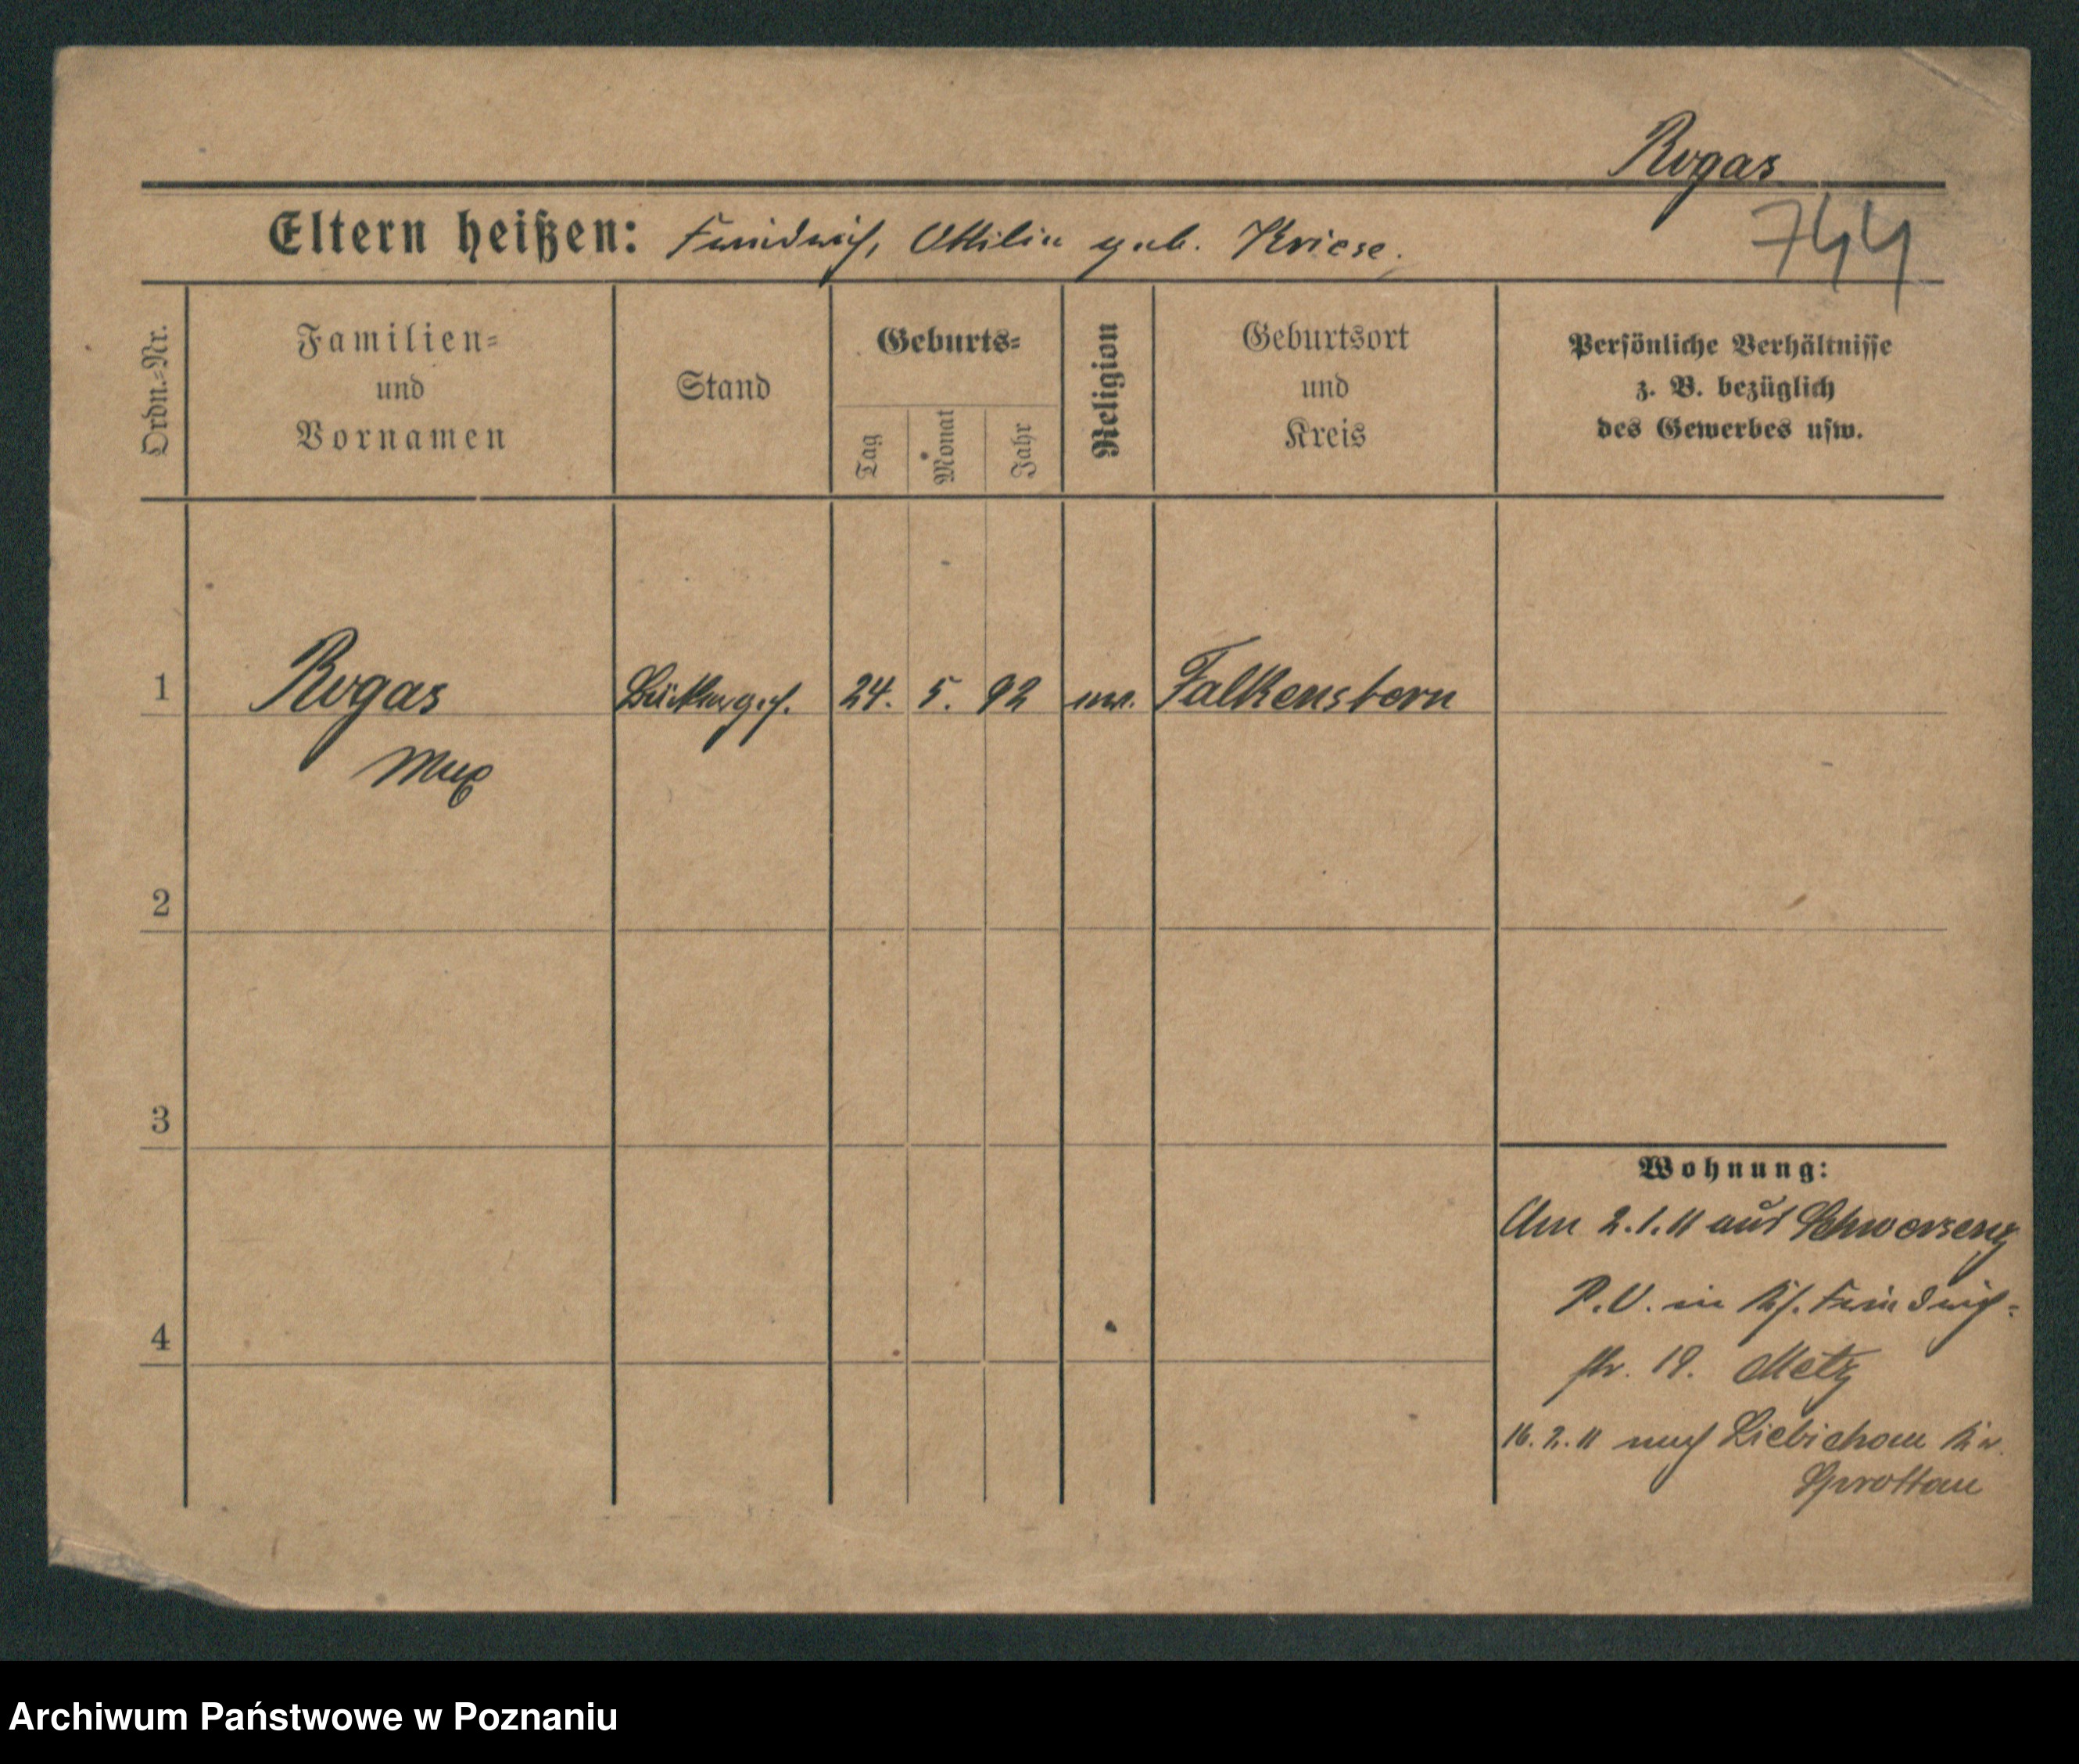 Rogas
744
Eltern heißen: Friedrich, Ottilie geb. Kriese.
Ordn.-Nr.
Familien-
und
Vornamen
Stand
Geburts-
Tag
Monat
Jahr
Religion
Geburtsort
und
Kreis
Persönliche Verhältnisse
z. B. bezüglich
des Gewerbes usw.
1
Rogas
Max
24. 5. 92
Falkenstern
2
3
4
Wohnung:
Am 2.1.11 aus Schwersenz
P.V. in Friedrich-
str. 19. Metz
16.2.11 nach Liebichau Kr.
Sprottau
Archiwum Państwowe w Poznaniu